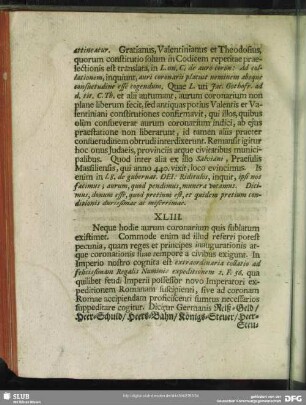 attineatur. Gratianus, Valentinianus et Theodosius,
quorum constitutio solum in Codicem repetitae prae-
lectionis est translata, in L. un. C. de auro coron: ad col-
lationem, inquiunt, auri coronarii placuit neminem absque
consuetudine esse cogendum. Quae L. uti Jac. Gothofr. ad
d. tit. C. Th. et alii autumant, aurum coronarium non
plane liberum fecit, sed antiquas potius Valentis et Va-
lentiniani constitutiones confirmavit, qui illos, quibus
olim consueverat aurum coronarium indici, ab ejus
praestatione non liberarunt, id tamen aliis praeter
consuetudinem obtrudi interdixerunt. Remansit igitur
hoc onus Judaeis, provinciis atque civitatibus munici-
palibus. Quod inter alia ex illo Salviani, Praesulis
Massiliensis, qui anno 440. vixit, loco evincimus. Is
enim in l. 8. de gubernat. DEI: Ridiculis, inquit, ipsi nos
facimus; aurum, quod pendimus, munera vocamus. Dici-
mus, donum esse, quod pretium est, et quidem pretium con-
ditionis durissimae ac miserrimae.
XLIII.
Neque hodie aurum coronarium quis sublatum
existimet. Commode enim ad illud referri potest
pecunia, quam reges et principes inaugurationis at-
que coronationis suae tempore a civibus exigunt. In
Imperio nostro cognita est extraordinaria collatio ad
felicissimam Regalis Numinis expeditionem 2. F. 56. qua
quilibet feudi Imperii possessor novo Imperatori ex-
peditionem Romanam suscipienti, sive ad coronam
Romae accipiendam proficiscenti sumtus necessarios
suppeditare cogitur. Dicitur Germanis Reiß-Geld/
Heer-Schuld/ Heers-Bahn/ Königs-Steuer/ Heer-
Steu-
SLUB
Wir führen Wissen.
gefördert von der
Deutschen Forschungsgemeinschaft
DFG